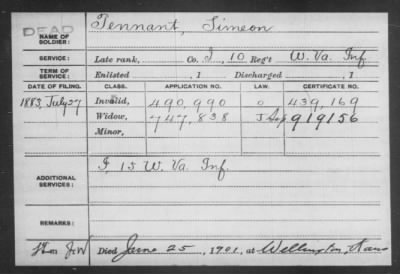 DEAD
NAME OF SOLDIER: Tennant, Simeon
SERVICE: Late rank, Co. I, 10 Reg't W. Va. Inf.
TERM OF SERVICE: Enlisted , 1 Discharged , 1
DATE OF FILING. CLASS. APPLICATION NO. LAW. CERTIFICATE NO.
1883, July 27 Invalid, 490,990 439,169
Widow, 747,838 919156
Minor,
ADDITIONAL SERVICES: I, 15 W. Va. Inf.
REMARKS:
Died June 25, 1901, at Wellington, Kans